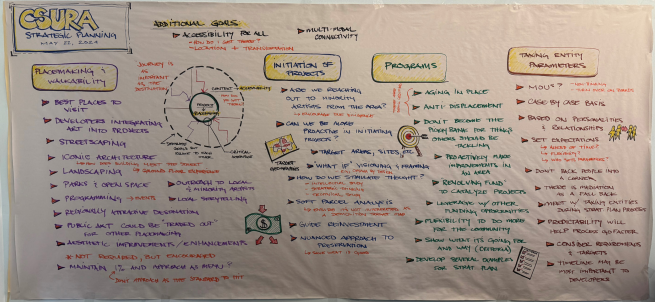 CSURA
STRATEGIC PLANNING
MAY 22, 2024
ADDITIONAL GOALS
ACCESSIBILITY FOR ALL
HOW DO I GET THERE?
LOCATION & TRANSPORTATION
MULTI-MODAL
CONNECTIVITY
PLACEMAKING &
WALKABILITY
BEST PLACES TO
VISIT
DEVELOPERS INTEGRATING
ART INTO PROJECTS
STREETSCAPING
ICONIC ARCHITECTURE
LANDSCAPING
PARKS & OPEN SPACE
PROGRAMMING
EVENTS
REGIONALLY ATTRACTIVE DESTINATION
PUBLIC ART COULD BE "TRADED OUT"
FOR OTHER PLACEMAKING
AESTHETIC IMPROVEMENTS/ENHANCEMENTS
NOT REQUIRED, BUT ENCOURAGED
MAINTAIN 1% AND APPROACH AS MENU?
JOURNEY IS
AS
IMPORTANT
AS THE
DESTINATION
CONTEXT
PEOPLE
CRITICAL
OUTREACH TO LOCAL
& MINORITY ARTISTS
LOCAL STORYTELLING
INITIATION OF
PROJECTS
ARE WE REACHING
OUT TO MINORITY
ARTISTS FROM THE AREA?
CAN WE BE MORE
PROACTIVE IN INITIATING
PROJECTS
TARGET AREAS, SITES, ETC.
"WHAT IF" VISIONING & PLANNING
HOW DO WE STIMULATE THOUGHT?
SOFT PARCEL ANALYSIS
GUIDE REINVESTMENT
NUANCED APPROACH TO
PRESERVATION
PROGRAMS
AGING IN PLACE
ANTI DISPLACEMENT
DON'T BECOME THE
PIGGY BANK FOR THINGS
OTHERS SHOULD BE
TACKLING
PROACTIVELY MAKE
IMPROVEMENTS IN
AN AREA
REVOLVING FUND
TO CATALYZE PROJECTS
LEVERAGE W/ OTHER
FUNDING OPPORTUNITIES
FLEXIBILITY TO DO MORE
FOR THE COMMUNITY
SHOW WHAT IS GOING FOR
ANY WAY (CRITERIA)
DEVELOP SEVERAL EXAMPLES
FOR STRAT PLAN
TAKING ENTITY
PARAMETERS
MOUS?
CASE BY CASE BASIS
BASED ON PERSONALITIES
& RELATIONSHIPS
SET EXPECTATIONS
AMOUNT OF TIME?
FUNDING?
DON'T BACK PEOPLE INTO
A CORNER
THERE IS MEDIATION
AS A FALL BACK
MEET W/ TAKING ENTITIES
DURING STRAT PLAN PROCESS
PREDICTABILITY WILL
HELP PROCESS GO FASTER
CONSIDER REQUIREMENTS
& TARGETS
TIMELINE MAY BE
MOST IMPORTANT TO
DEVELOPERS